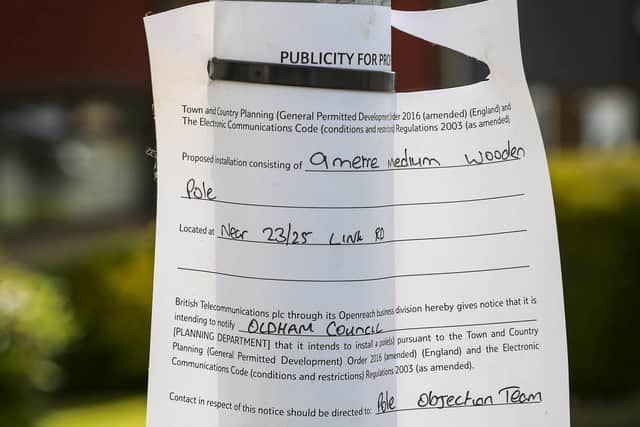 PUBLICITY FOR PRO
Town and Country Planning (General Permitted Development Order 2016 (amended) (England) and
The Electronic Communications Code (conditions and restrict Regulations 2003 (as amended)
Proposed installation consisting of 9 metre Medium Wooden
Pole
Located at Near 23/25 LINK RD
British Telecommunications plc through its Openreach business division hereby gives notice that it is
intending to notify OLDHAM COUNCIL
[PLANNING DEPARTMENT] that it intends to install a pole(s) pursuant to the Town and Country
Planning (General Permitted Development) Order 2016 (amended) (England) and the Electronic
Communications Code (conditions and restrictions) Regulations 2003 (as amended).
Contact in respect of this notice should be directed to: Pole Objection Team